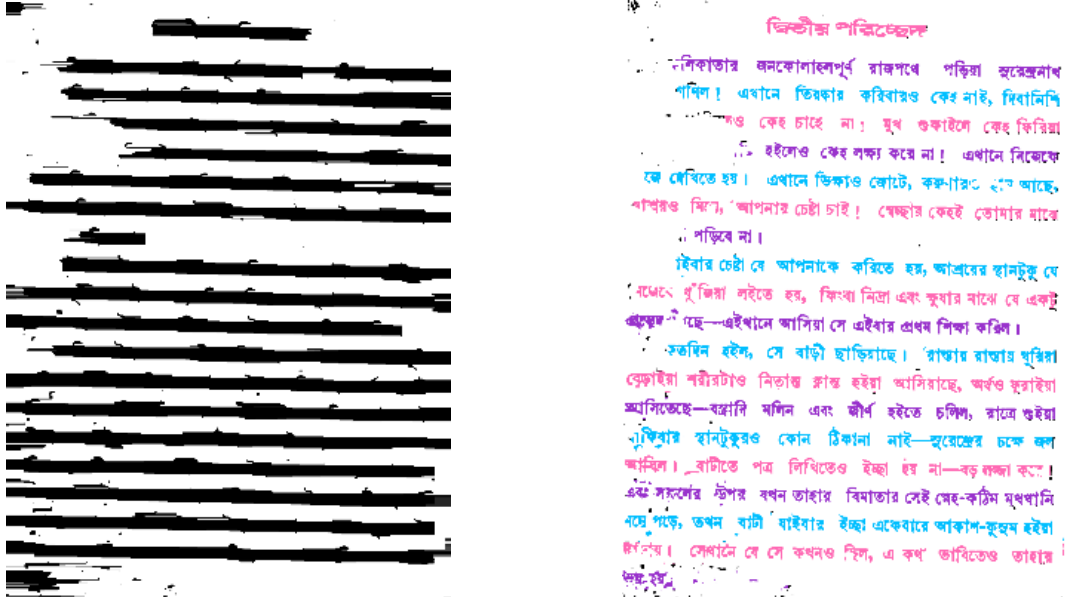 দ্বিতীয় পরিচ্ছেদ
জনকোলাহলপূর্ণ রাজপথে পড়িয়া সুরেন্দ্রনাথ
এখানে তিরস্কার করিবারও কেহ নাই, দিবানিশি
কেহ চাহে না; মুখ শুকাইলে কেহ ফিরিয়া
হইলেও কেহ লক্ষ্য করে না! এখানে নিজেকে
দেখিতে হয়। এখানে ভিক্ষাও জোটে, করুণারও আছে,
আপনার চেষ্টা চাই! স্বেচ্ছায় কেহই তোমার মাঝে
পড়িবে না।
চেষ্টা যে আপনাকে করিতে হয়, আশ্রয়ের স্থানটুকু যে
খুঁজিয়া লইতে হয়, কিংবা নিদ্রা এবং ক্ষুধার মাঝে যে একটু
—এইখানে আসিয়া সে এইবার প্রথম শিক্ষা করিল।
কতদিন হইল, সে বাড়ী ছাড়িয়াছে। রাস্তায় রাস্তায় ঘুরিয়া
বেড়াইয়া শরীরটাও নিতান্ত ক্লান্ত হইয়া আসিয়াছে, অর্থও ফুরাইয়া
আসিতেছে—বস্ত্রাদি মলিন এবং জীর্ণ হইতে চলিল, রাত্রে শুইয়া
থাকিবার স্থানটুকুরও কোন ঠিকানা নাই—সুরেন্দ্রের চক্ষে জল
আসিল। বাটীতে পত্র লিখিতেও ইচ্ছা হয় না—বড় লজ্জা করে!
এবং সকলের উপর যখন তাহার বিমাতার সেই স্নেহ-কঠিন মুখখানি
মনে পড়ে, তখন বাটী যাইবার ইচ্ছা একেবারে আকাশ-কুসুম হইয়া
সেখানে যে সে কখনও ছিল, এ কথা ভাবিতেও তাহার
ভয় হয়।